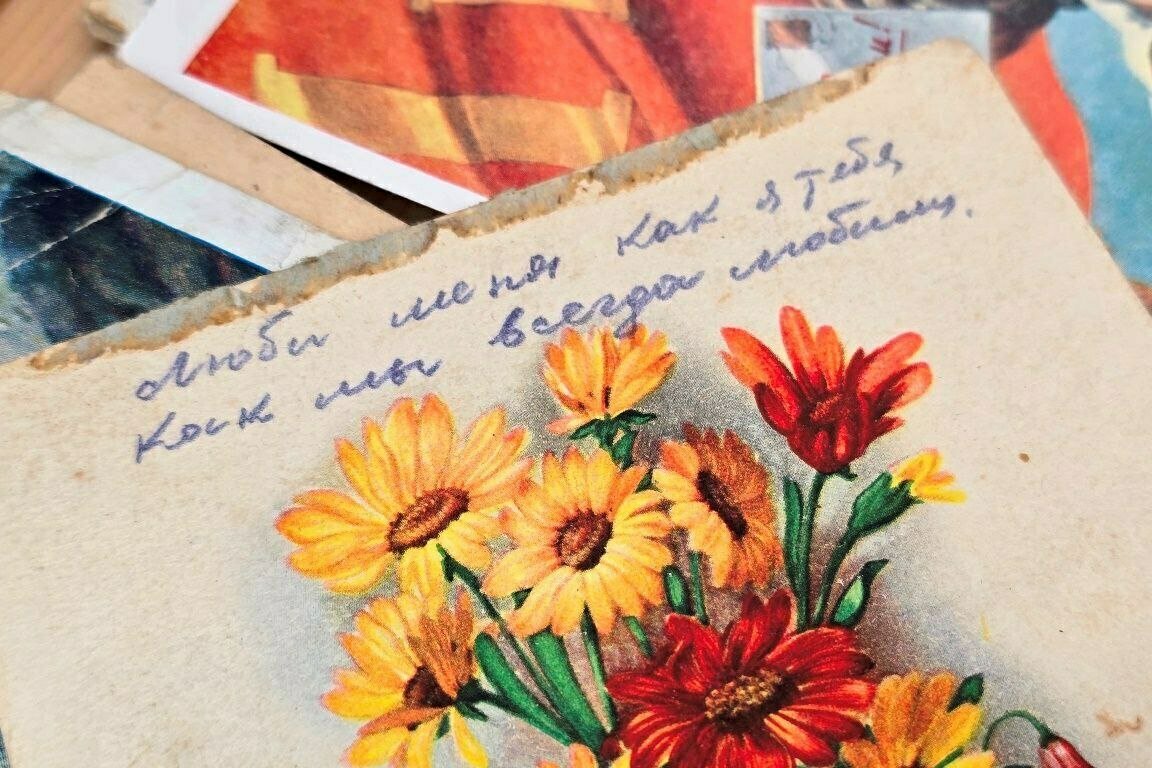 Люби меня, как я тебя,
Как мы всегда любили.